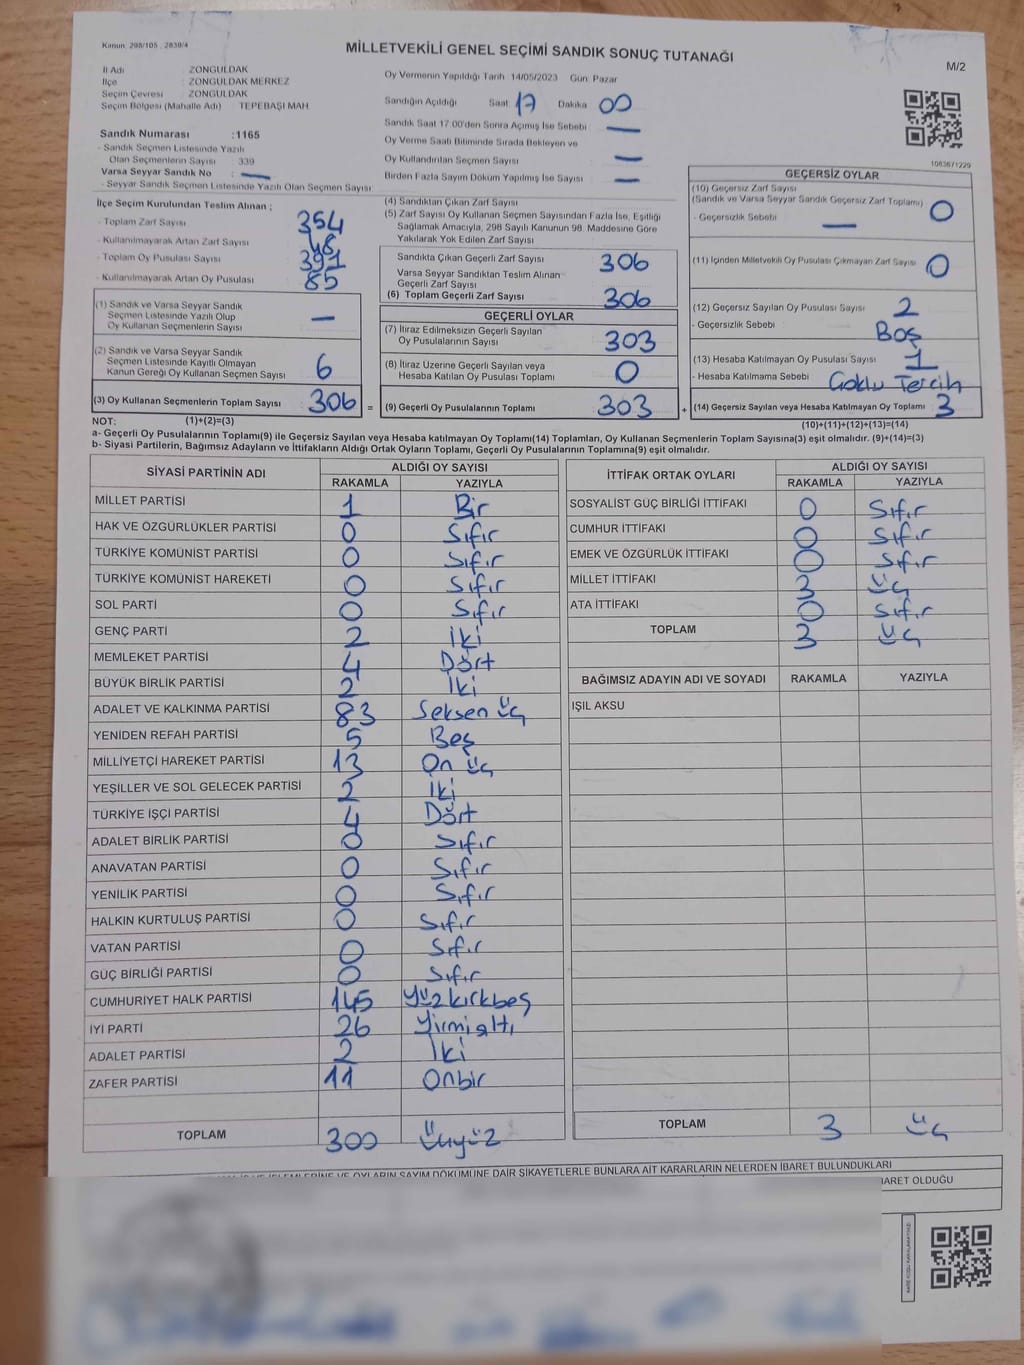 Kanun: 298/105 , 2839/4
MİLLETVEKİLİ GENEL SEÇİMİ SANDIK SONUÇ TUTANAĞI
M/2
İl Adı : ZONGULDAK
İlçe : ZONGULDAK MERKEZ
Seçim Çevresi : ZONGULDAK
Seçim Bölgesi (Mahalle Adı) : TEPEBAŞI MAH
Oy Vermenin Yapıldığı Tarih 14/05/2023 Gün Pazar
Sandığın Açıldığı Saat 17 Dakika 00
Sandık Saat 17:00'den Sonra Açılmış İse Sebebi —
Oy Verme Saati Bitiminde Sırada Bekleyen ve
Oy Kullandırılan Seçmen Sayısı —
Birden Fazla Sayım Döküm Yapılmış İse Sayısı —
Sandık Numarası :1165
- Sandık Seçmen Listesinde Yazılı
Olan Seçmenlerin Sayısı : 339
Varsa Seyyar Sandık No : —
- Seyyar Sandık Seçmen Listesinde Yazılı Olan Seçmen Sayısı :
1083671229
İlçe Seçim Kurulundan Teslim Alınan ;
- Toplam Zarf Sayısı 354
- Kullanılmayarak Artan Zarf Sayısı 48
- Toplam Oy Pusulası Sayısı 391
- Kullanılmayarak Artan Oy Pusulası 85
(1) Sandık ve Varsa Seyyar Sandık
Seçmen Listesinde Yazılı Olup
Oy Kullanan Seçmenlerin Sayısı —
(2) Sandık ve Varsa Seyyar Sandık
Seçmen Listesinde Kayıtlı Olmayan
Kanun Gereği Oy Kullanan Seçmen Sayısı 6
(3) Oy Kullanan Seçmenlerin Toplam Sayısı 306 =
(1)+(2)=(3)
(4) Sandıktan Çıkan Zarf Sayısı
(5) Zarf Sayısı Oy Kullanan Seçmen Sayısından Fazla İse, Eşitliği
Sağlamak Amacıyla, 298 Sayılı Kanunun 98. Maddesine Göre
Yakılarak Yok Edilen Zarf Sayısı
Sandıkta Çıkan Geçerli Zarf Sayısı 306
Varsa Seyyar Sandıktan Teslim Alınan
Geçerli Zarf Sayısı
(6) Toplam Geçerli Zarf Sayısı 306
GEÇERLİ OYLAR
(7) İtiraz Edilmeksizin Geçerli Sayılan
Oy Pusulalarının Sayısı 303
(8) İtiraz Üzerine Geçerli Sayılan veya
Hesaba Katılan Oy Pusulası Toplamı 0
(9) Geçerli Oy Pusulalarının Toplamı 303 +
GEÇERSİZ OYLAR
(10) Geçersiz Zarf Sayısı
(Sandık ve Varsa Seyyar Sandık Geçersiz Zarf Toplamı) 0
- Geçersizlik Sebebi : —
(11) İçinden Milletvekili Oy Pusulası Çıkmayan Zarf Sayısı 0
(12) Geçersiz Sayılan Oy Pusulası Sayısı 2
- Geçersizlik Sebebi : Boş
(13) Hesaba Katılmayan Oy Pusulası Sayısı 1
- Hesaba Katılmama Sebebi : Çoklu Tercih
(14) Geçersiz Sayılan veya Hesaba Katılmayan Oy Toplamı 3
(10)+(11)+(12)+(13)=(14)
NOT:
a- Geçerli Oy Pusulalarının Toplamı(9) ile Geçersiz Sayılan veya Hesaba katılmayan Oy Toplamı(14) Toplamları, Oy Kullanan Seçmenlerin Toplam Sayısına(3) eşit olmalıdır. (9)+(14)=(3)
b- Siyasi Partilerin, Bağımsız Adayların ve İttifakların Aldığı Ortak Oyların Toplamı, Geçerli Oy Pusulalarının Toplamına(9) eşit olmalıdır.
SİYASİ PARTİNİN ADI ALDIĞI OY SAYISI
RAKAMLA YAZIYLA
MİLLET PARTİSİ 1 Bir
HAK VE ÖZGÜRLÜKLER PARTİSİ 0 Sıfır
TÜRKİYE KOMÜNİST PARTİSİ 0 Sıfır
TÜRKİYE KOMÜNİST HAREKETİ 0 Sıfır
SOL PARTİ 0 Sıfır
GENÇ PARTİ 2 İki
MEMLEKET PARTİSİ 4 Dört
BÜYÜK BİRLİK PARTİSİ 2 İki
ADALET VE KALKINMA PARTİSİ 83 Seksen üç
YENİDEN REFAH PARTİSİ 5 Beş
MİLLİYETÇİ HAREKET PARTİSİ 13 On üç
YEŞİLLER VE SOL GELECEK PARTİSİ 2 İki
TÜRKİYE İŞÇİ PARTİSİ 4 Dört
ADALET BİRLİK PARTİSİ 0 Sıfır
ANAVATAN PARTİSİ 0 Sıfır
YENİLİK PARTİSİ 0 Sıfır
HALKIN KURTULUŞ PARTİSİ 0 Sıfır
VATAN PARTİSİ 0 Sıfır
GÜÇ BİRLİĞİ PARTİSİ 0 Sıfır
CUMHURİYET HALK PARTİSİ 145 Yüzkırkbeş
İYİ PARTİ 26 Yirmialtı
ADALET PARTİSİ 2 İki
ZAFER PARTİSİ 11 Onbir
TOPLAM 300 Üçyüz
İTTİFAK ORTAK OYLARI ALDIĞI OY SAYISI
RAKAMLA YAZIYLA
SOSYALİST GÜÇ BİRLİĞİ İTTİFAKI 0 Sıfır
CUMHUR İTTİFAKI 0 Sıfır
EMEK VE ÖZGÜRLÜK İTTİFAKI 0 Sıfır
MİLLET İTTİFAKI 3 Üç
ATA İTTİFAKI 0 Sıfır
TOPLAM 3 Üç
BAĞIMSIZ ADAYIN ADI VE SOYADI RAKAMLA YAZIYLA
IŞIL AKSU
TOPLAM 3 Üç
İŞLEMLERİNE VE OYLARIN SAYIM DÖKÜMÜNE DAİR ŞİKAYETLERLE BUNLARA AİT KARARLARIN NELERDEN İBARET BULUNDUKLARI
BARET OLDUĞU